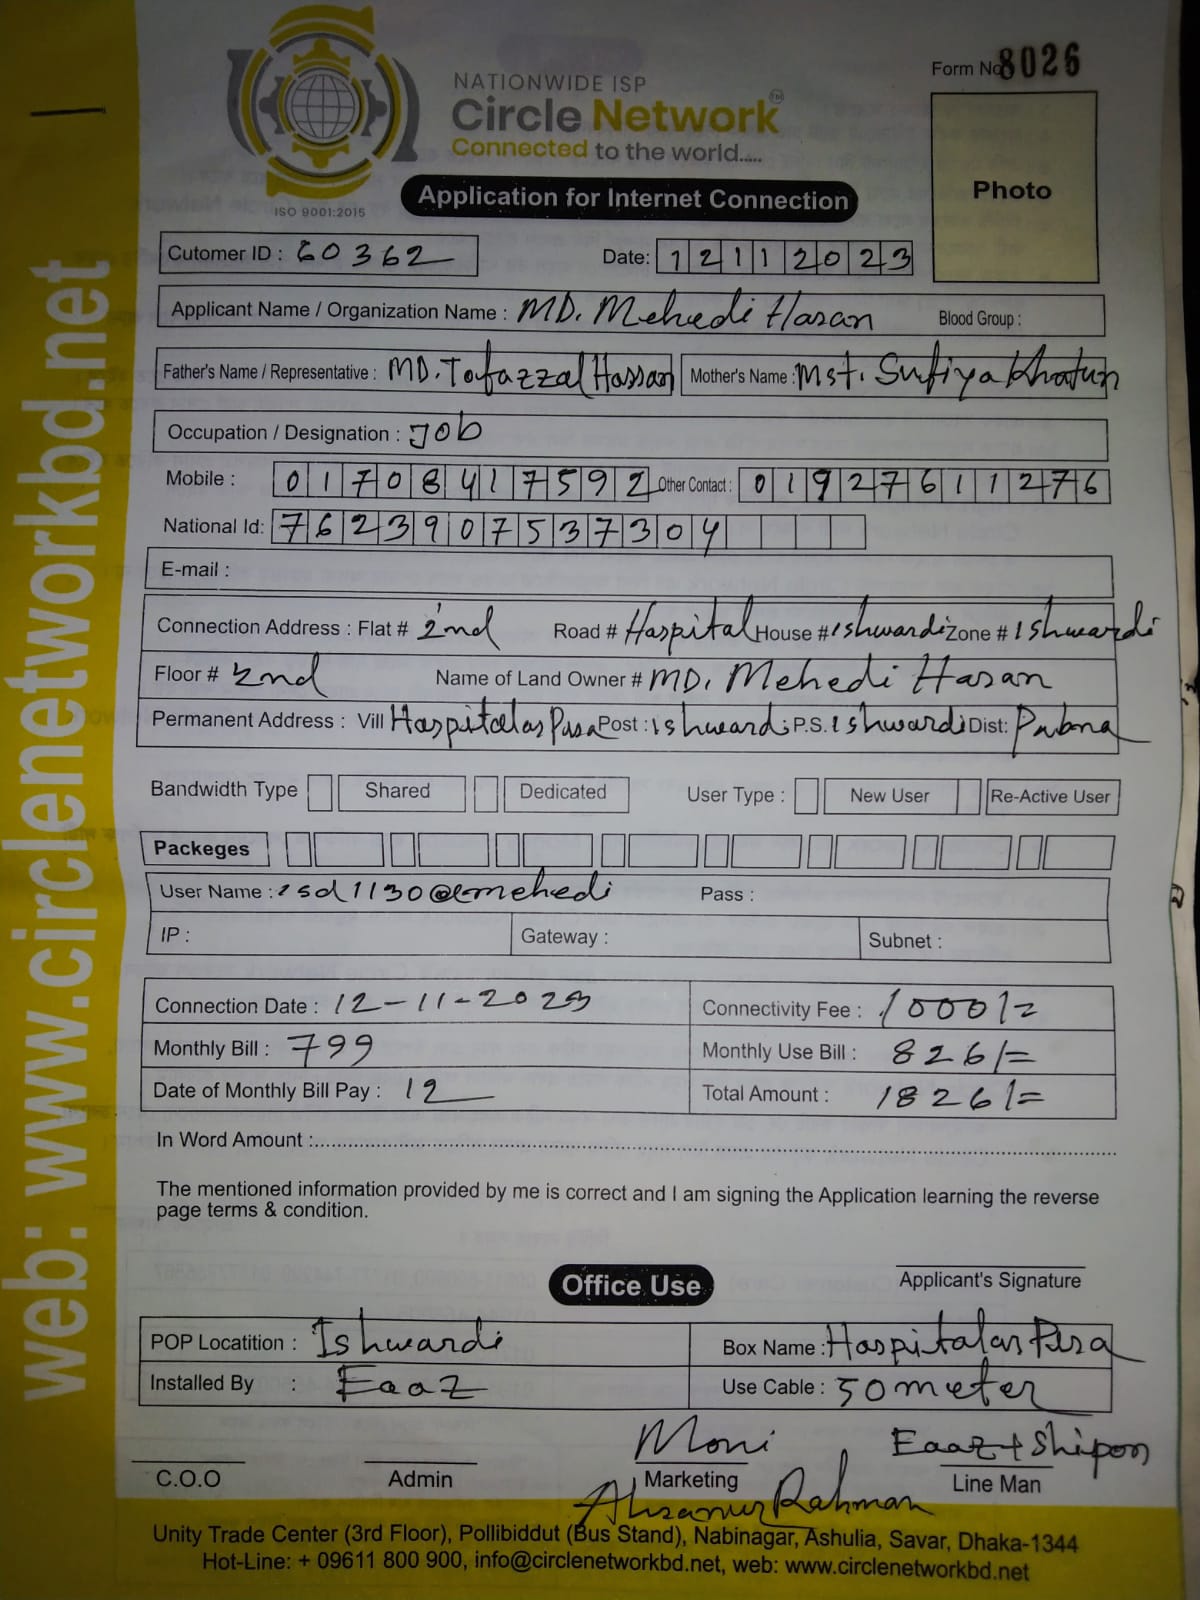 Form No 8026
NATIONWIDE ISP
Circle Network
Connected to the world.....
ISO 9001:2015
Application for Internet Connection
Photo
Cutomer ID : 60362 Date: 12112023
Applicant Name / Organization Name : MD. Mehedi Hasan Blood Group :
Father's Name / Representative : MD. Tofazzal Hassan Mother's Name : Mst. Sufiya Khatun
Occupation / Designation : Job
Mobile : 01708417592 Other Contact : 01927611276
National Id: 7623907537304
E-mail :
Connection Address : Flat # 2nd Road # Haspital House # Ishwardi Zone # Ishwardi
Floor # 2nd Name of Land Owner # MD. Mehedi Hasan
Permanent Address : Vill Haspitalas Para Post : Ishwardi P.S. Ishwardi Dist: Pabna
Bandwidth Type Shared Dedicated User Type : New User Re-Active User
Packeges
User Name : isd1130@cmehedi Pass :
IP : Gateway : Subnet :
Connection Date : 12-11-2023 Connectivity Fee : 1000/=
Monthly Bill : 799 Monthly Use Bill : 826/=
Date of Monthly Bill Pay : 12 Total Amount : 1826/=
In Word Amount :
The mentioned information provided by me is correct and I am signing the Application learning the reverse
page terms & condition.
Office Use
Applicant's Signature
POP Locatition : Ishwardi Box Name : Hospitalas Para
Installed By : Eaaz Use Cable : 50 meter
Moni Eaaz + Shipon
C.O.O Admin Marketing Line Man
Ahsanur Rahman
Unity Trade Center (3rd Floor), Pollibiddut (Bus Stand), Nabinagar, Ashulia, Savar, Dhaka-1344
Hot-Line: + 09611 800 900, info@circlenetworkbd.net, web: www.circlenetworkbd.net
web: www.circlenetworkbd.net